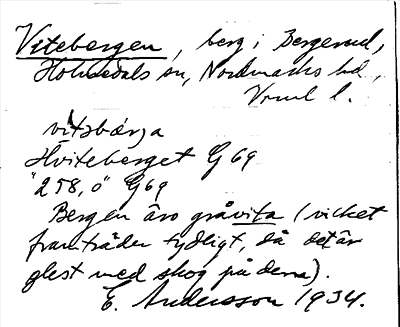 Vitebergen, berg i Bergerud,
Holmedals sn, Nordmarks hd.,
Vrml l.
vìtsbærja
Hviteberget G 69
"258,0" G69
Bergen äro gråvita (vilket
framträder tydligt, då det är
glest med skog på dem).
E. Andersson 1934.